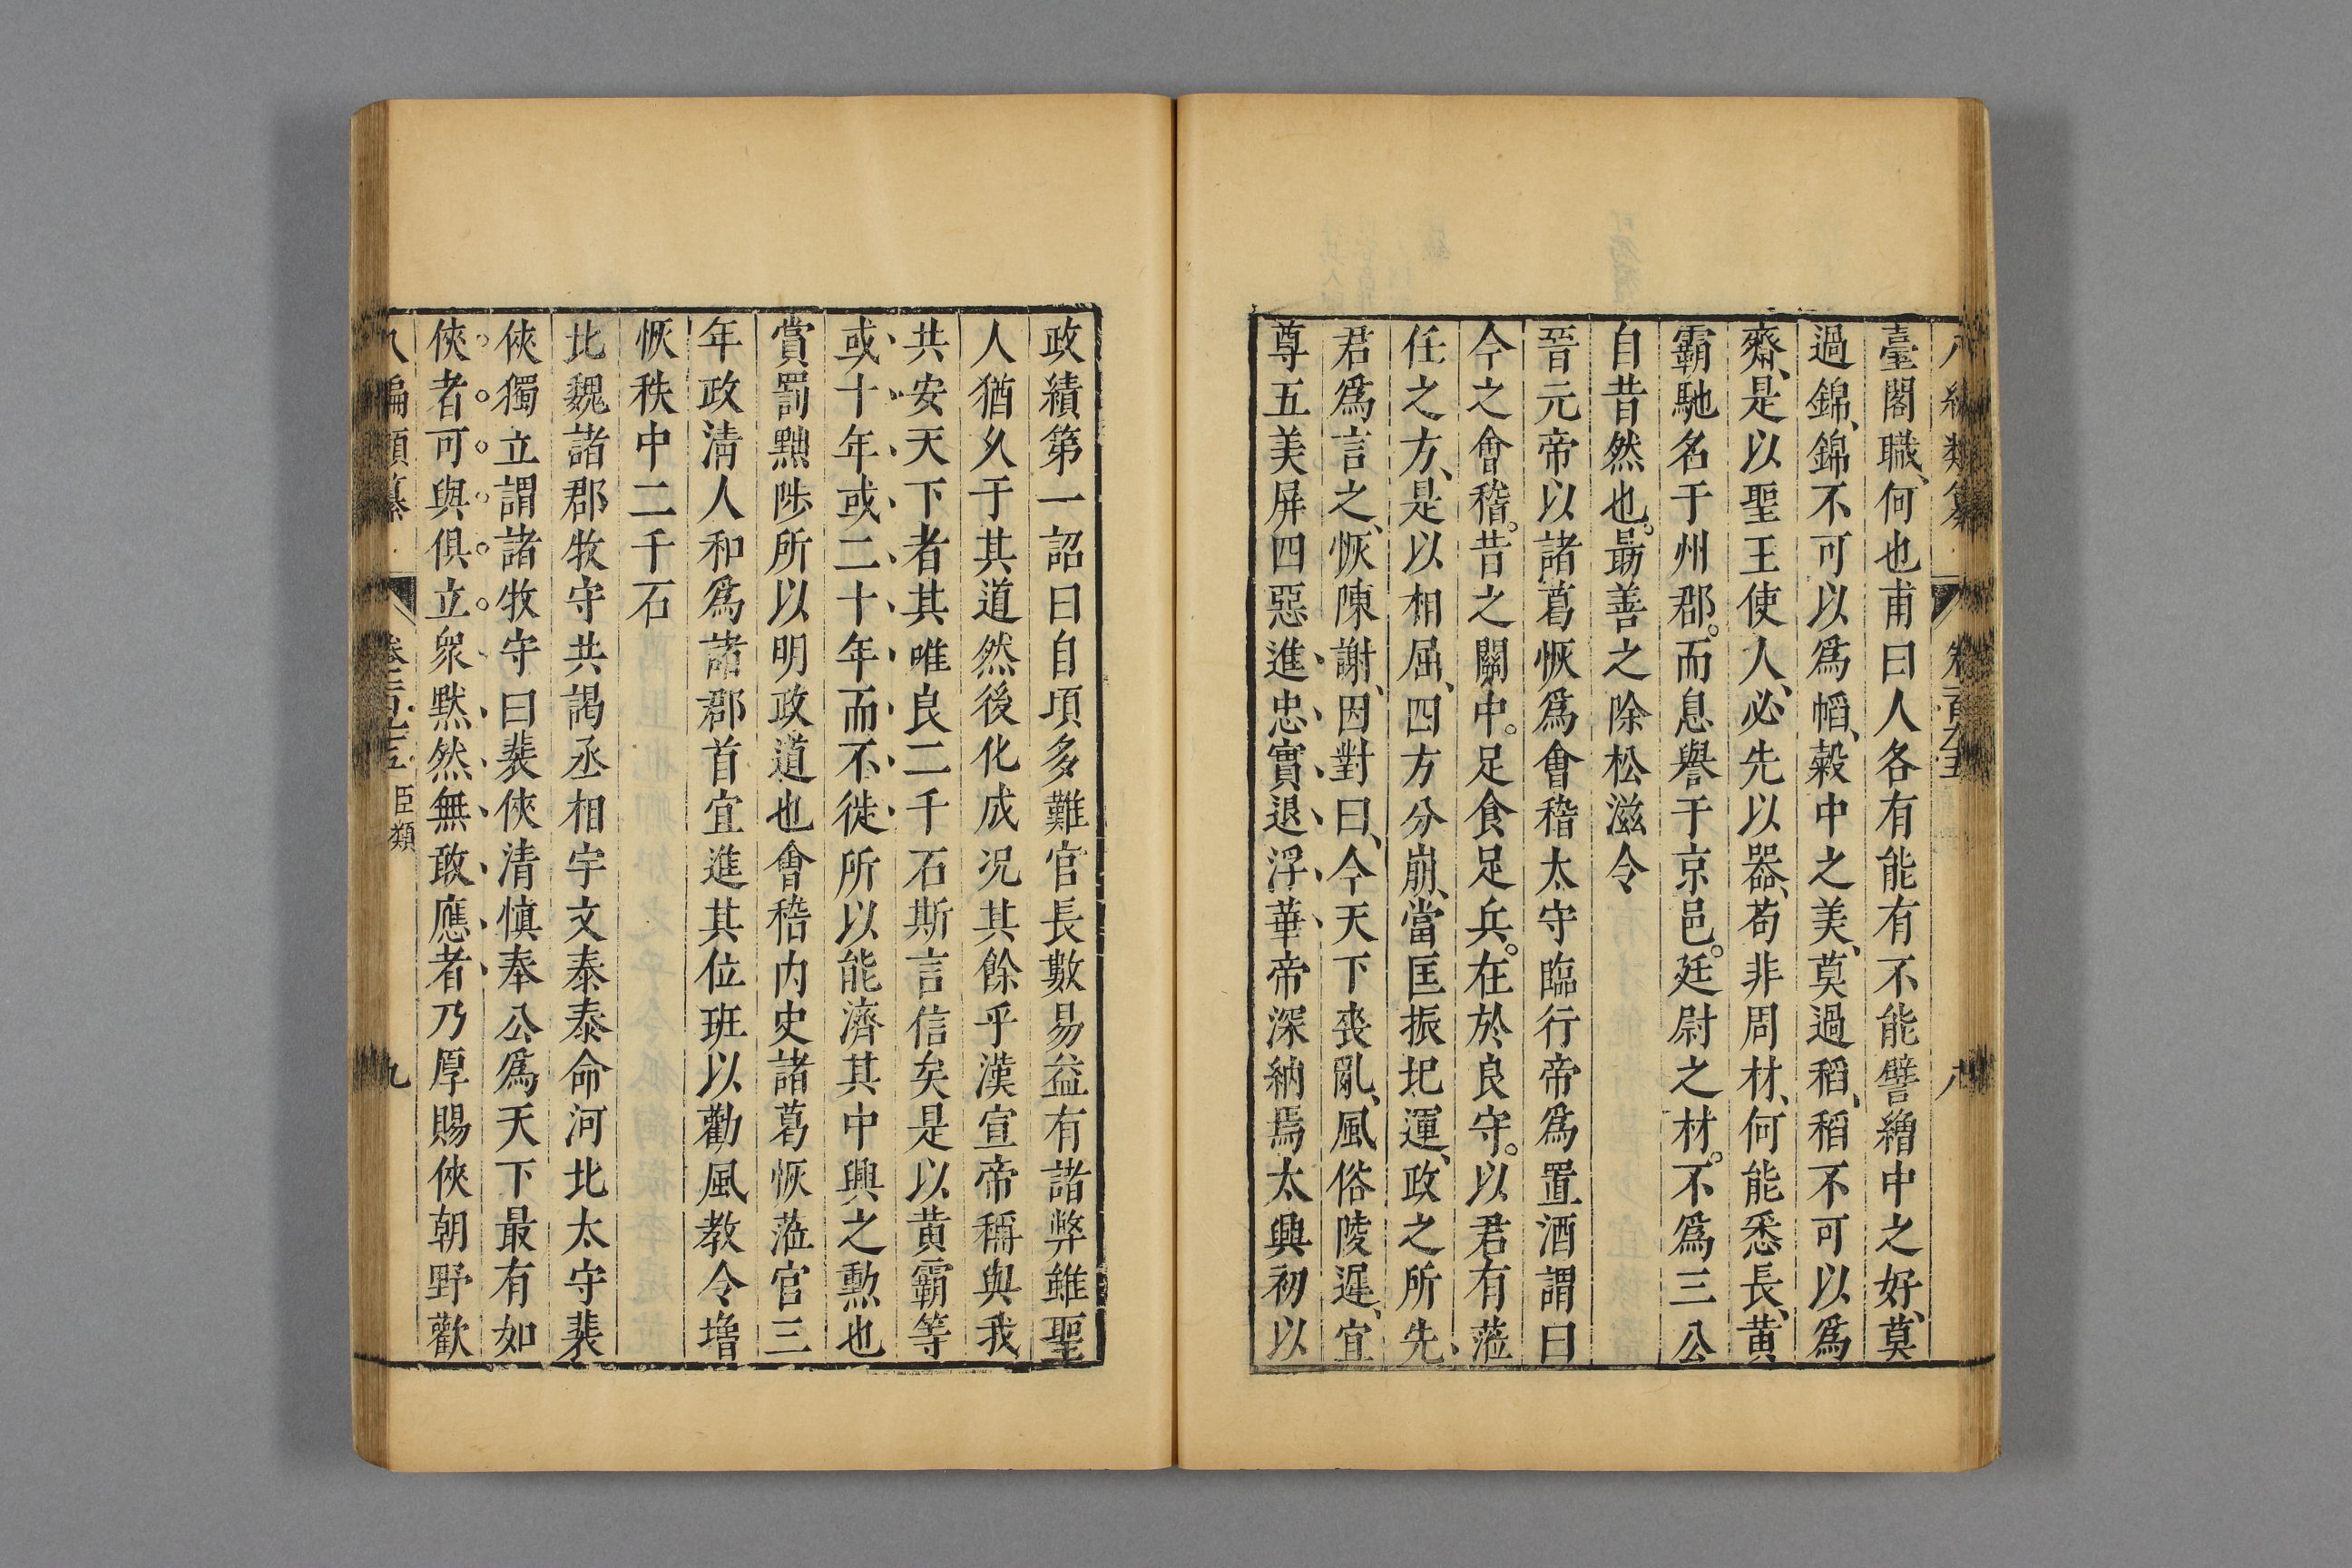 臺閣職、何也甫曰人各有能有不能譬繒中之好、莫
過錦、錦不可以爲幍、糓中之美、莫過稻、稻不可以爲
齋、是以聖王使人、必先以器、苟非周材、何能悉長、黄
霸馳名于州郡。而息譽于京邑。廷尉之材。不爲三公
自昔然也。最善之除松滋令
晉元帝以諸葛恢爲會稽太守臨行帝爲置酒謂曰
今之會稽。昔之關中。足食足兵。在於良守。以君有蒞
任之方、是以相屈、四方分崩、當匡振圯運、政之所先、
君爲言之、恢陳謝、因對曰、今天下喪亂、風俗陵遲、宜
尊五美屏四惡進、忠、實、退、浮、華、帝深納焉太興初以
政績第一詔曰自頃多難官長數易益有諸弊雖聖
人猶久于其道然後化成况其餘乎漢宣帝稱與我
共安天下者其唯良二千石斯言信矣是以黄霸等
或、十、年、或、二、十、年、而、不、徙、所以能濟其中興之勲也
賞罰黜陟所以明政道也會稽内史諸葛恢蒞官三
年政清人和爲諸郡首宜進其位班以勸風教令增
恢秩中二千石
比魏諸郡牧守共謁丞相宇文泰泰命河北太守裴
俠獨立謂諸牧守曰裴俠清慎奉公爲天下最有如
俠。者。可。與。俱。立。衆、默、然、無、敢、應、者、乃厚賜俠朝野歡
八編類纂 卷二百九十五 臣類 九